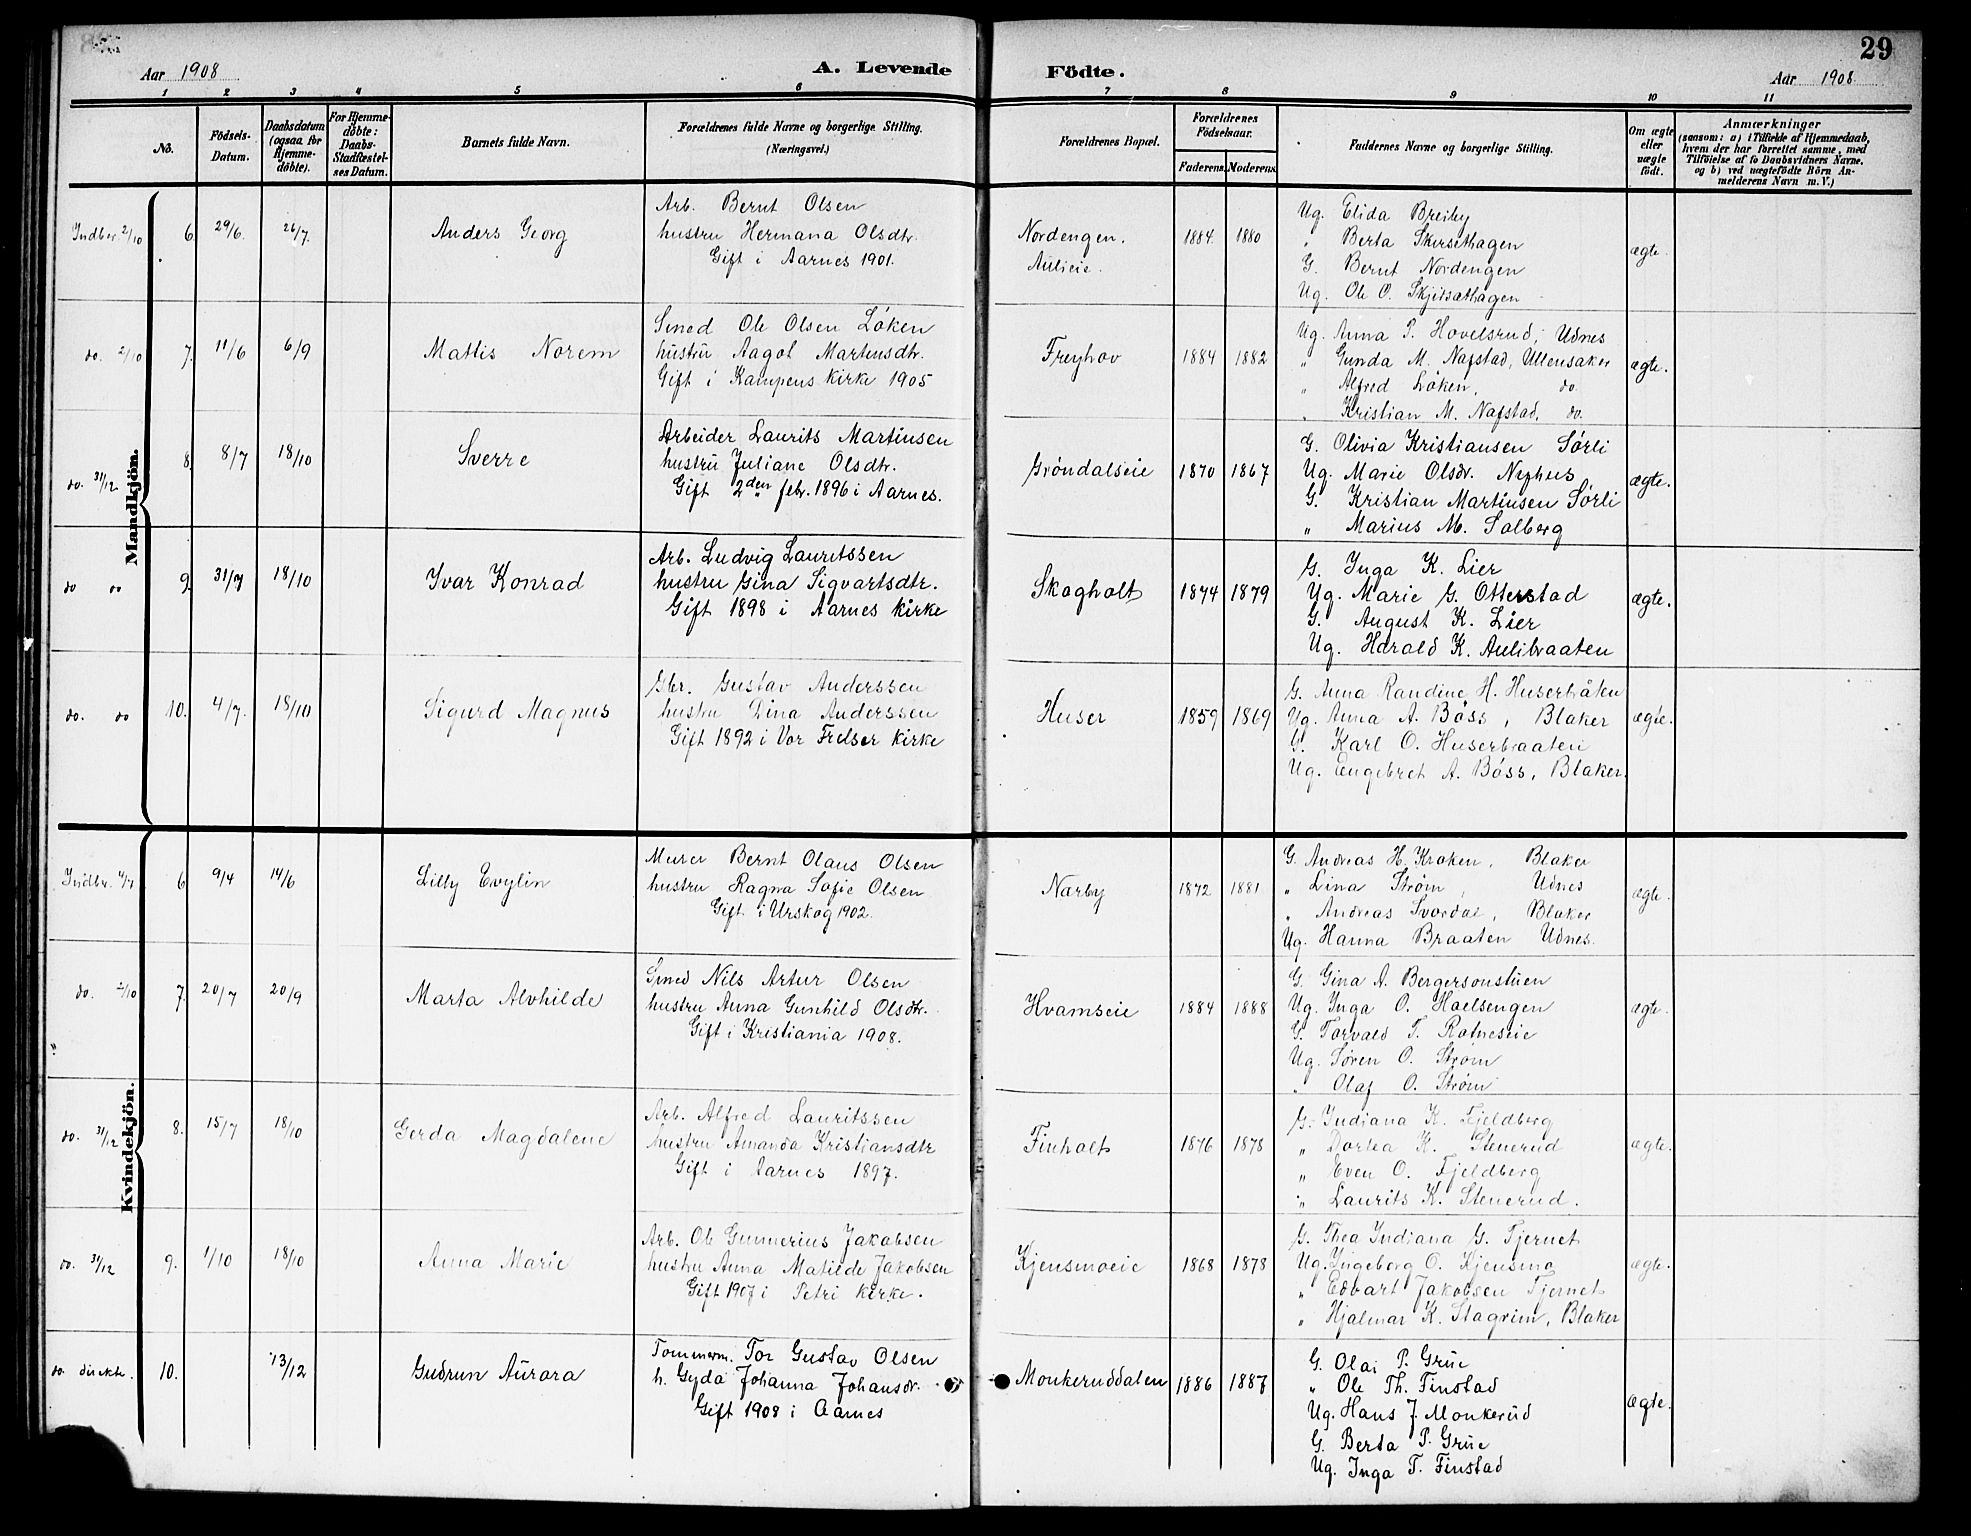 Aar 1908
A. Levende Födte.
29
Aar 1908
1 2 3 4 5 6 7 8 9 10 11
No.
Födsels-Datum.
Daabsdatum (ogsaa for Hjemme-döbte).
For Hjemme-döbte: Daabs-Stadfæstel-ses Datum.
Barnets fulde Navn.
Forældrenes fulde Navne og borgerlige Stilling.
(Næringsvei.)
Forældrenes Bopæl.
Forældrenes Födselsaar.
Faderens. Moderens.
Faddernes Navne og borgerlige Stilling.
Om ægte eller uægte födt.
Anmærkninger
(saasom: a) i Tilfælde af Hjemmedaab, hvem der har forrettet samme, med Tilföielse af to Daabsvidners Navne. og b) ved uægtefödte Börn An-melderens Navn m. V.)
Mandkjön.
Indber 2/10 6. 29/6. 26/7. Anders Georg
Arb. Bernt Olsen
hustru Hermana Olsdtr.
Gift i Aarnes 1901.
Nordengen.
Aulieie.
1884. 1880
Ug. Elida Breiby
„ Berta Skersethagen
G. Bernt Nordengen
Ug. Ole O. Skjilsæthagen
ægte.
do. 2/10 7. 11/6 6/9 Mattis Norem
Smed Ole Olsen Løken
hustru Aagot Martinsdtr.
Gift i Kampens Kirke 1905
Freyhov 1884 1882
Ug. Anna P. Hovelsrud, Udnes
„ Gunda M. Nafstad, Ullensaker
„ Alfred Løken, do.
„ Kristian M. Nafstad, do.
ægte.
do. 31/12 8. 8/7 18/10 Sverre
Arbeider Laurits Martinsen
hustru Juliane Olsdtr.
Gift 2den febr. 1896 i Aarnes.
Grøndalseie 1870 1867
G. Olivia Kristiansen Sørli
Ug. Marie Olsdr. Nyhus
G. Kristian Martinsen Sørli
„ Marius M. Solberg
ægte.
do do 9. 31/7 18/10 Ivar Konrad
Arb. Ludvig Lauritssen
hustru Gina Sigvartsdtr.
Gift 1898 i Aarnes Kirke
Skogholt 1874 1879
G. Inga K. Lier
Ug. Marie G. Otterstad
G. August K. Lier
Ug. Harald K. Aulibraaten
ægte.
do. do 10. 4/7. 18/10 Sigurd Magnus
Gbr. Gustav Anderssen
hustru Dina Anderssen
Gift 1892 i Vor Frelser Kirke
Huser 1859 1869
G. Anna Randine H. Huserbråten
Ug. Anna A. Böss, Blaker
G. Karl O. Huserbraaten
Ug. Engebret A. Böss, Blaker.
ægte.
Kvindekjön.
Indber. 6 9/4 14/6 Lilly Evylin
Murer Bernt Olaus Olsen
hustru Ragna Sofie Olsen
Gift i Urskog 1902.
Nærby 1872 1881
G. Andreas H. Kroken, Blaker
„ Lina Strøm, Udnes
„ Andreas Svordal, Blaker
Ug. Hanna Braaten Udnes.
ægte.
do. 2/10 7. 20/7 20/9 Marta Alvhilde
Smed Nils Artur Olsen
hustru Anna Gunhild Olsdtr.
Gift i Kristiania 1908.
Hvamseie 1884 1888
G. Gina A. Bergersonstuen
Ug. Inga O. Haelsengen
G. Torvald T. Ratneseie
Ug. Søren O. Strøm
„ Olaf O. Strøm
ægte.
do. 31/12 8. 15/7 18/10 Gerda Magdalene
Arb. Alfred Lauritssen
hustru Amanda Kristiansdtr
Gift i Aarnes 1897.
Finholt 1876 1878
G. Indiana K. Fjeldberg
„ Dortea K. Stenerud
„ Even O. Fjeldberg
„ Laurits K. Stenerud.
ægte.
do. 31/12 9. 1/10 18/10 Anna Marie
Arb. Ole Gunnerius Jakobsen
hustru Anna Matilde Jakobsen
Gift 1907 i Petri Kirke.
Kjensmoeie 1868 1878
G. Thea Indiana G. Tjernet
Ug. Ingeborg O. Kjensmo
„ Edvart Jakobsen Tjernet
„ Hjalmar K. Stagrim, Blaker
ægte.
do direkte. 10. 13/12 Gudrun Aurora
Tømmerm. Tor Gustav Olsen
h. Gyda Johanna Johansdr.
Gift 1908 i Aarnes
Monkeruddalen 1886 1887
G. Olai P. Grue
„ Ole Th. Finstad
Ug. Hans J. Monkerud
G. Berta P. Grue
Ug. Inga T. Finstad
ægte.